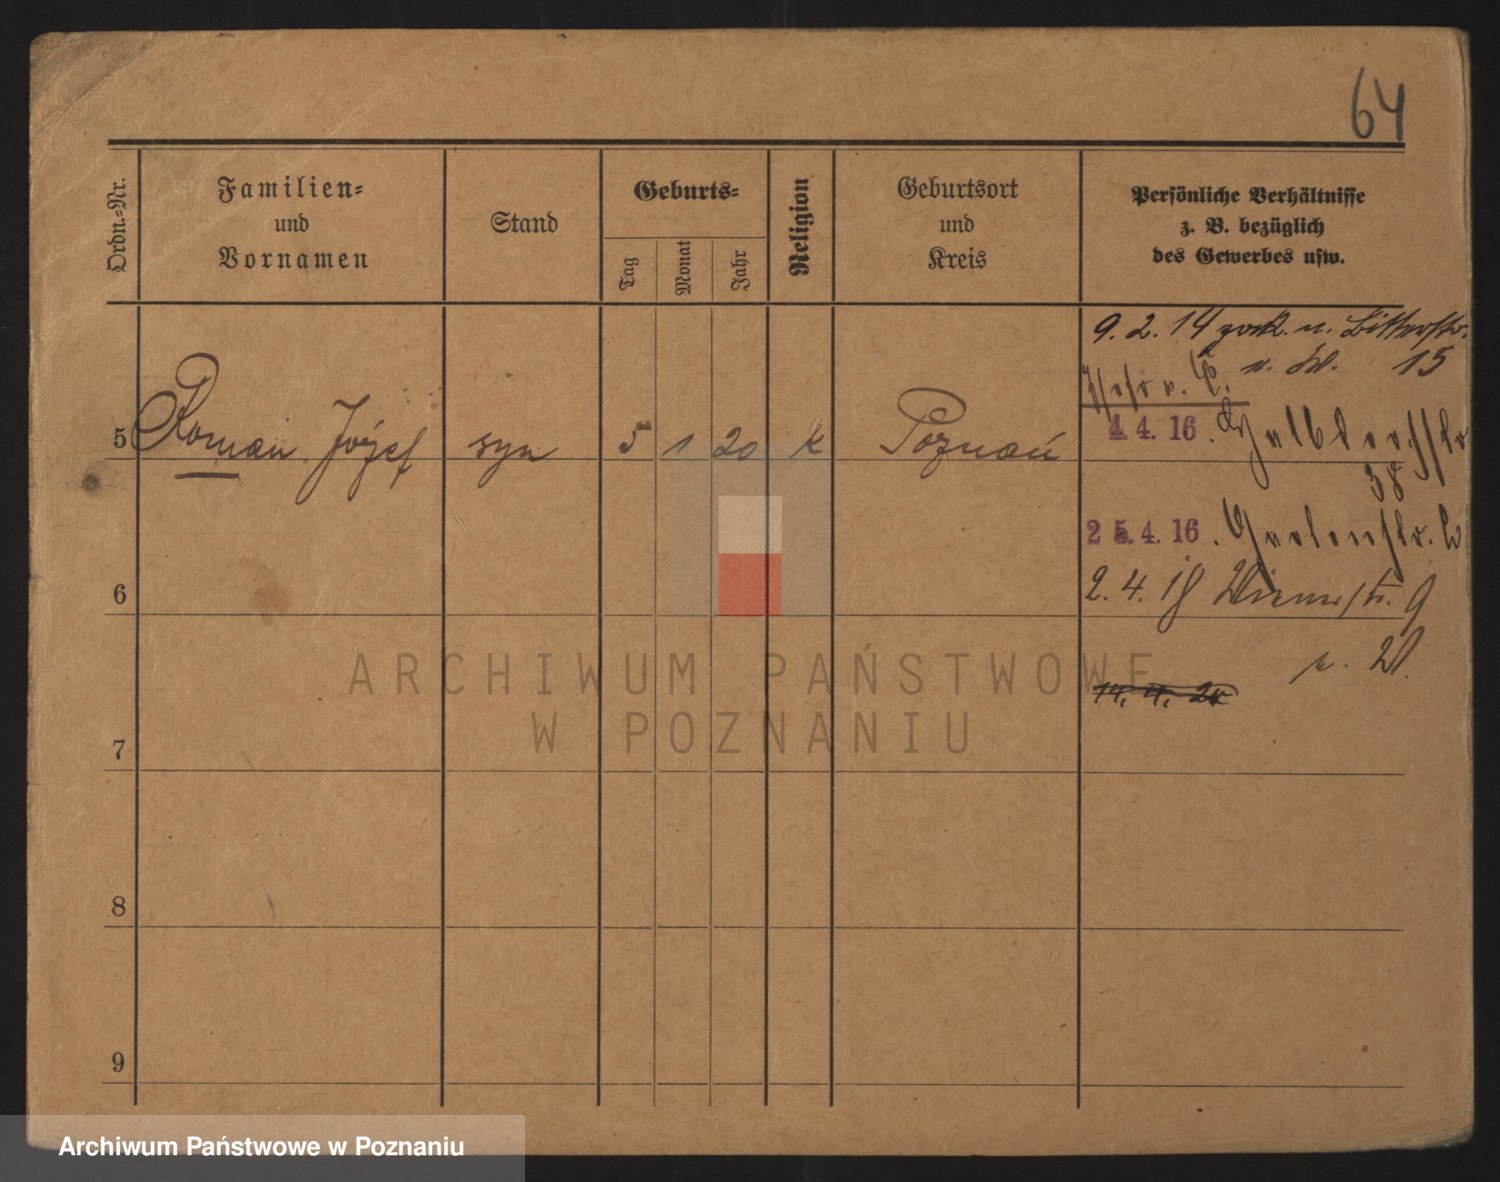 64
Ordn.=Nr.
Familien=
und
Vornamen
Stand
Geburts=
Tag
Monat
Jahr
Religion
Geburtsort
und
Kreis
Persönliche Verhältnisse
z. B. bezüglich
des Gewerbes usw.
9. 2. 14 zurk. n. Bitterstr.
v. W. 15
5 Roman Józef syn 5 1 20 k Poznań
4. 4. 16. Halbdorfstr
38
25. 4. 16. Gartenstr.
6
2. 4. 18 Wienerstr. 9
14. 4. 20
7
8
9
ARCHIWUM PAŃSTWOWE
W POZNANIU
Archiwum Państwowe w Poznaniu